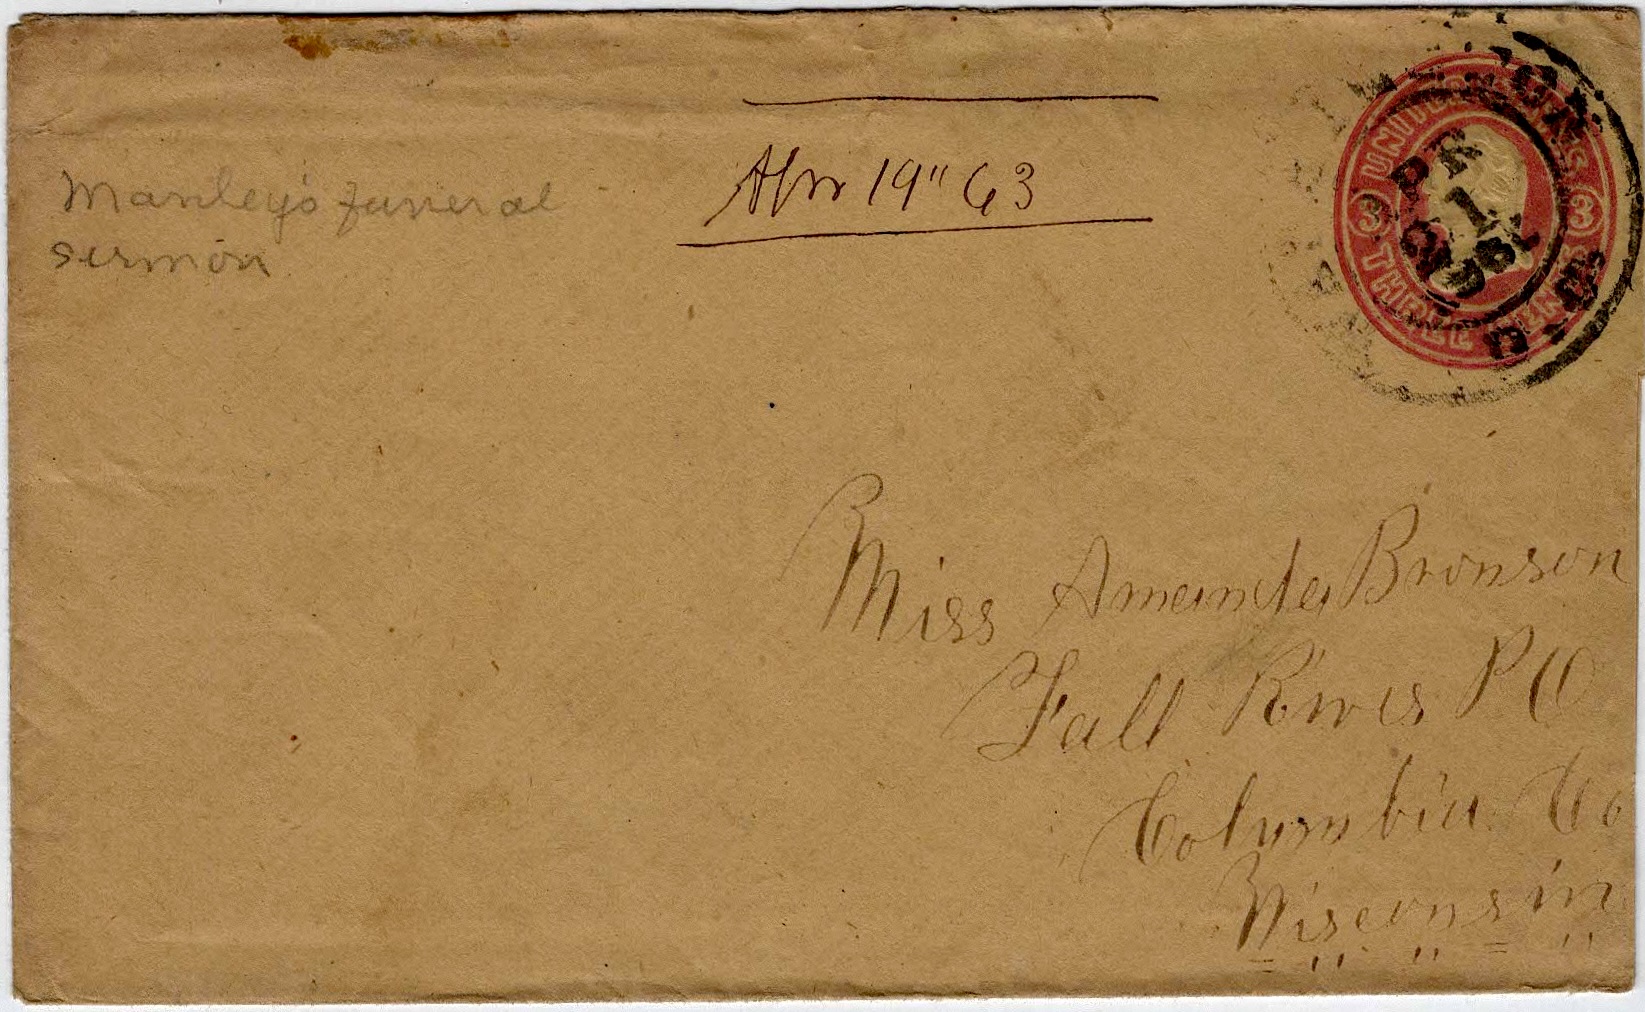 Manley's funeral
sermon
Apr 19" 63
UNITED STATES
3 3
THREE CENTS
APR
1
Miss Amanda Bronson
Fall River P O
Columbia Co
Wisconsin